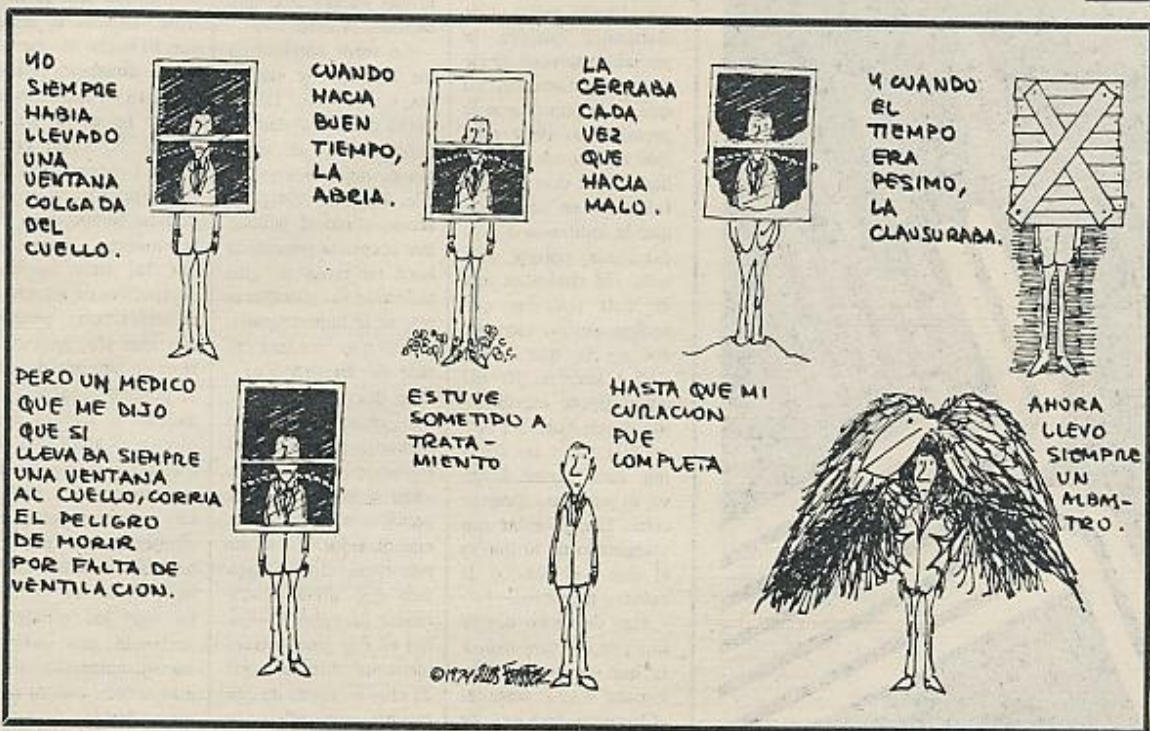 YO
SIEMPRE
HABIA
LLEVADO
UNA
VENTANA
COLGADA
DEL
CUELLO.
CUANDO
HACIA
BUEN
TIEMPO,
LA
ABRIA.
LA
CERRABA
CADA
VEZ
QUE
HACIA
MALO.
Y CUANDO
EL
TIEMPO
ERA
PESIMO,
LA
CLAUSURABA.
PERO UN MEDICO
QUE ME DIJO
QUE SI
LLEVABA SIEMPRE
UNA VENTANA
AL CUELLO, CORRIA
EL PELIGRO
DE MORIR
POR FALTA DE
VENTILACION.
ESTUVE
SOMETIDO A
TRATA-
MIENTO
HASTA QUE MI
CURACION
FUE
COMPLETA
AHORA
LLEVO
SIEMPRE
UN
ALBA-
TRO.
©1974